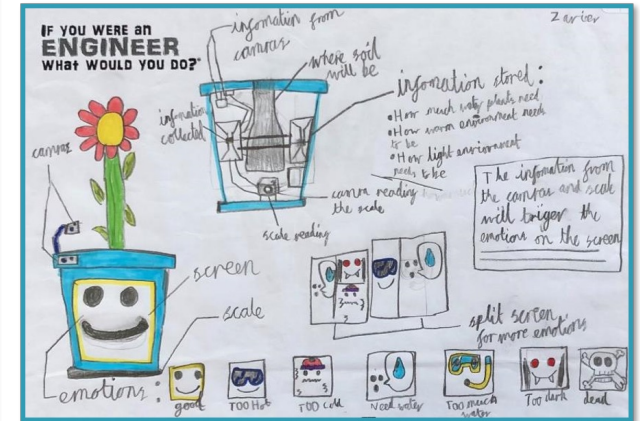 IF YOU WERE AN
ENGINEER
WHAT WOULD YOU DO?
infomation from
camras
where soil
will be
infomation
collected
infomation stored:
• How much water plants need
• How warm environment needs
to be
• How light environment
needs to be
camra reading
the scale
scale reading
camras
screen
scale
The infomation from
the camras and scale
will triger the
emotions on the screen
split screen
for more emotions
emotions:
good
TOO Hot
TOO cold
Need water
Too much
water
Too dark
dead